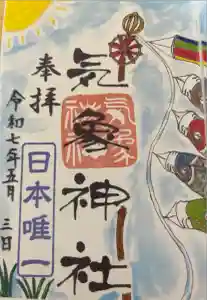 奉拝
気象神社
気象神社
令和七年五月三日
日本唯一